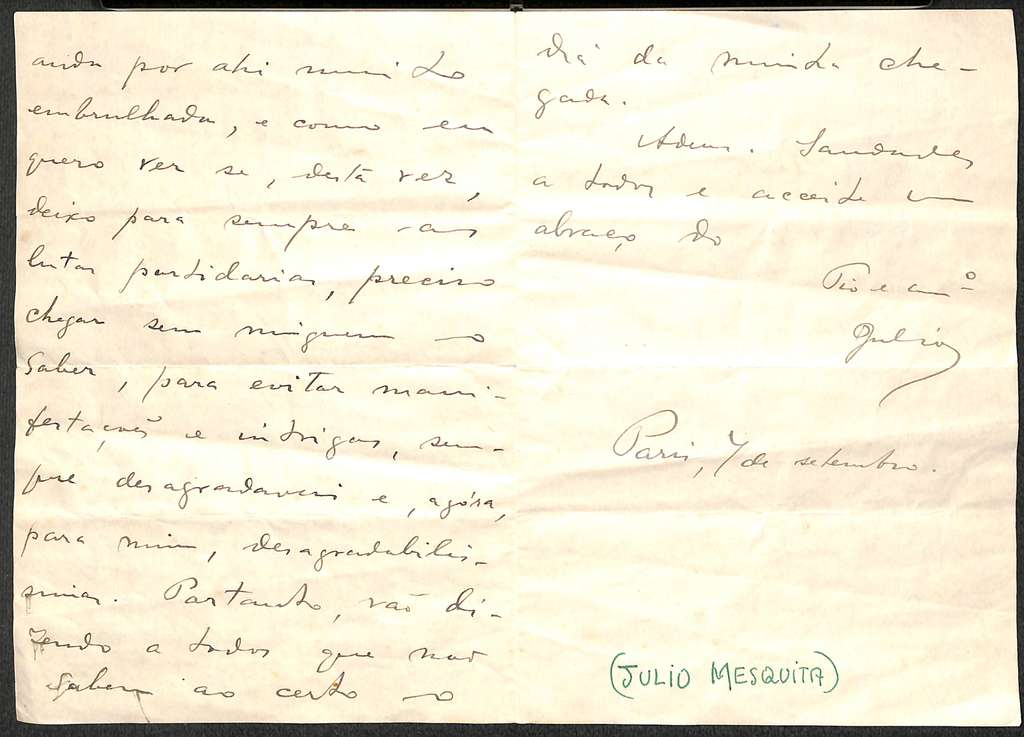 anda por ahi muito
embrulhada, e como eu
quero ver se, desta vez,
deixo para sempre as
lutas partidarias, preciso
chegar sem ninguem o
saber, para evitar mani-
festações e intrigas, sem-
pre desagradaveis e, agóra,
para mim, desagradabilis-
simas. Portanto, vão di-
zendo a todos que não
sabem ao certo o
dia da minha che-
gada.
Adeus. Saudades
a todos e acceite um
abraço do
Tio e am.º
Julio
Paris, 7 de setembro.
(JULIO MESQUITA)